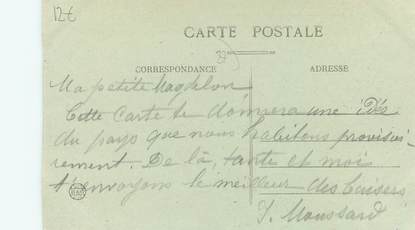 12€
CARTE POSTALE
39
CORRESPONDANCE
ADRESSE
Ma petite Magdelon
Cette Carte te donnera une idés
du pays que nous habitons provisoi-
rement. De là, tante et moi
t'envoyons le meilleur des baisers
J. Moussard